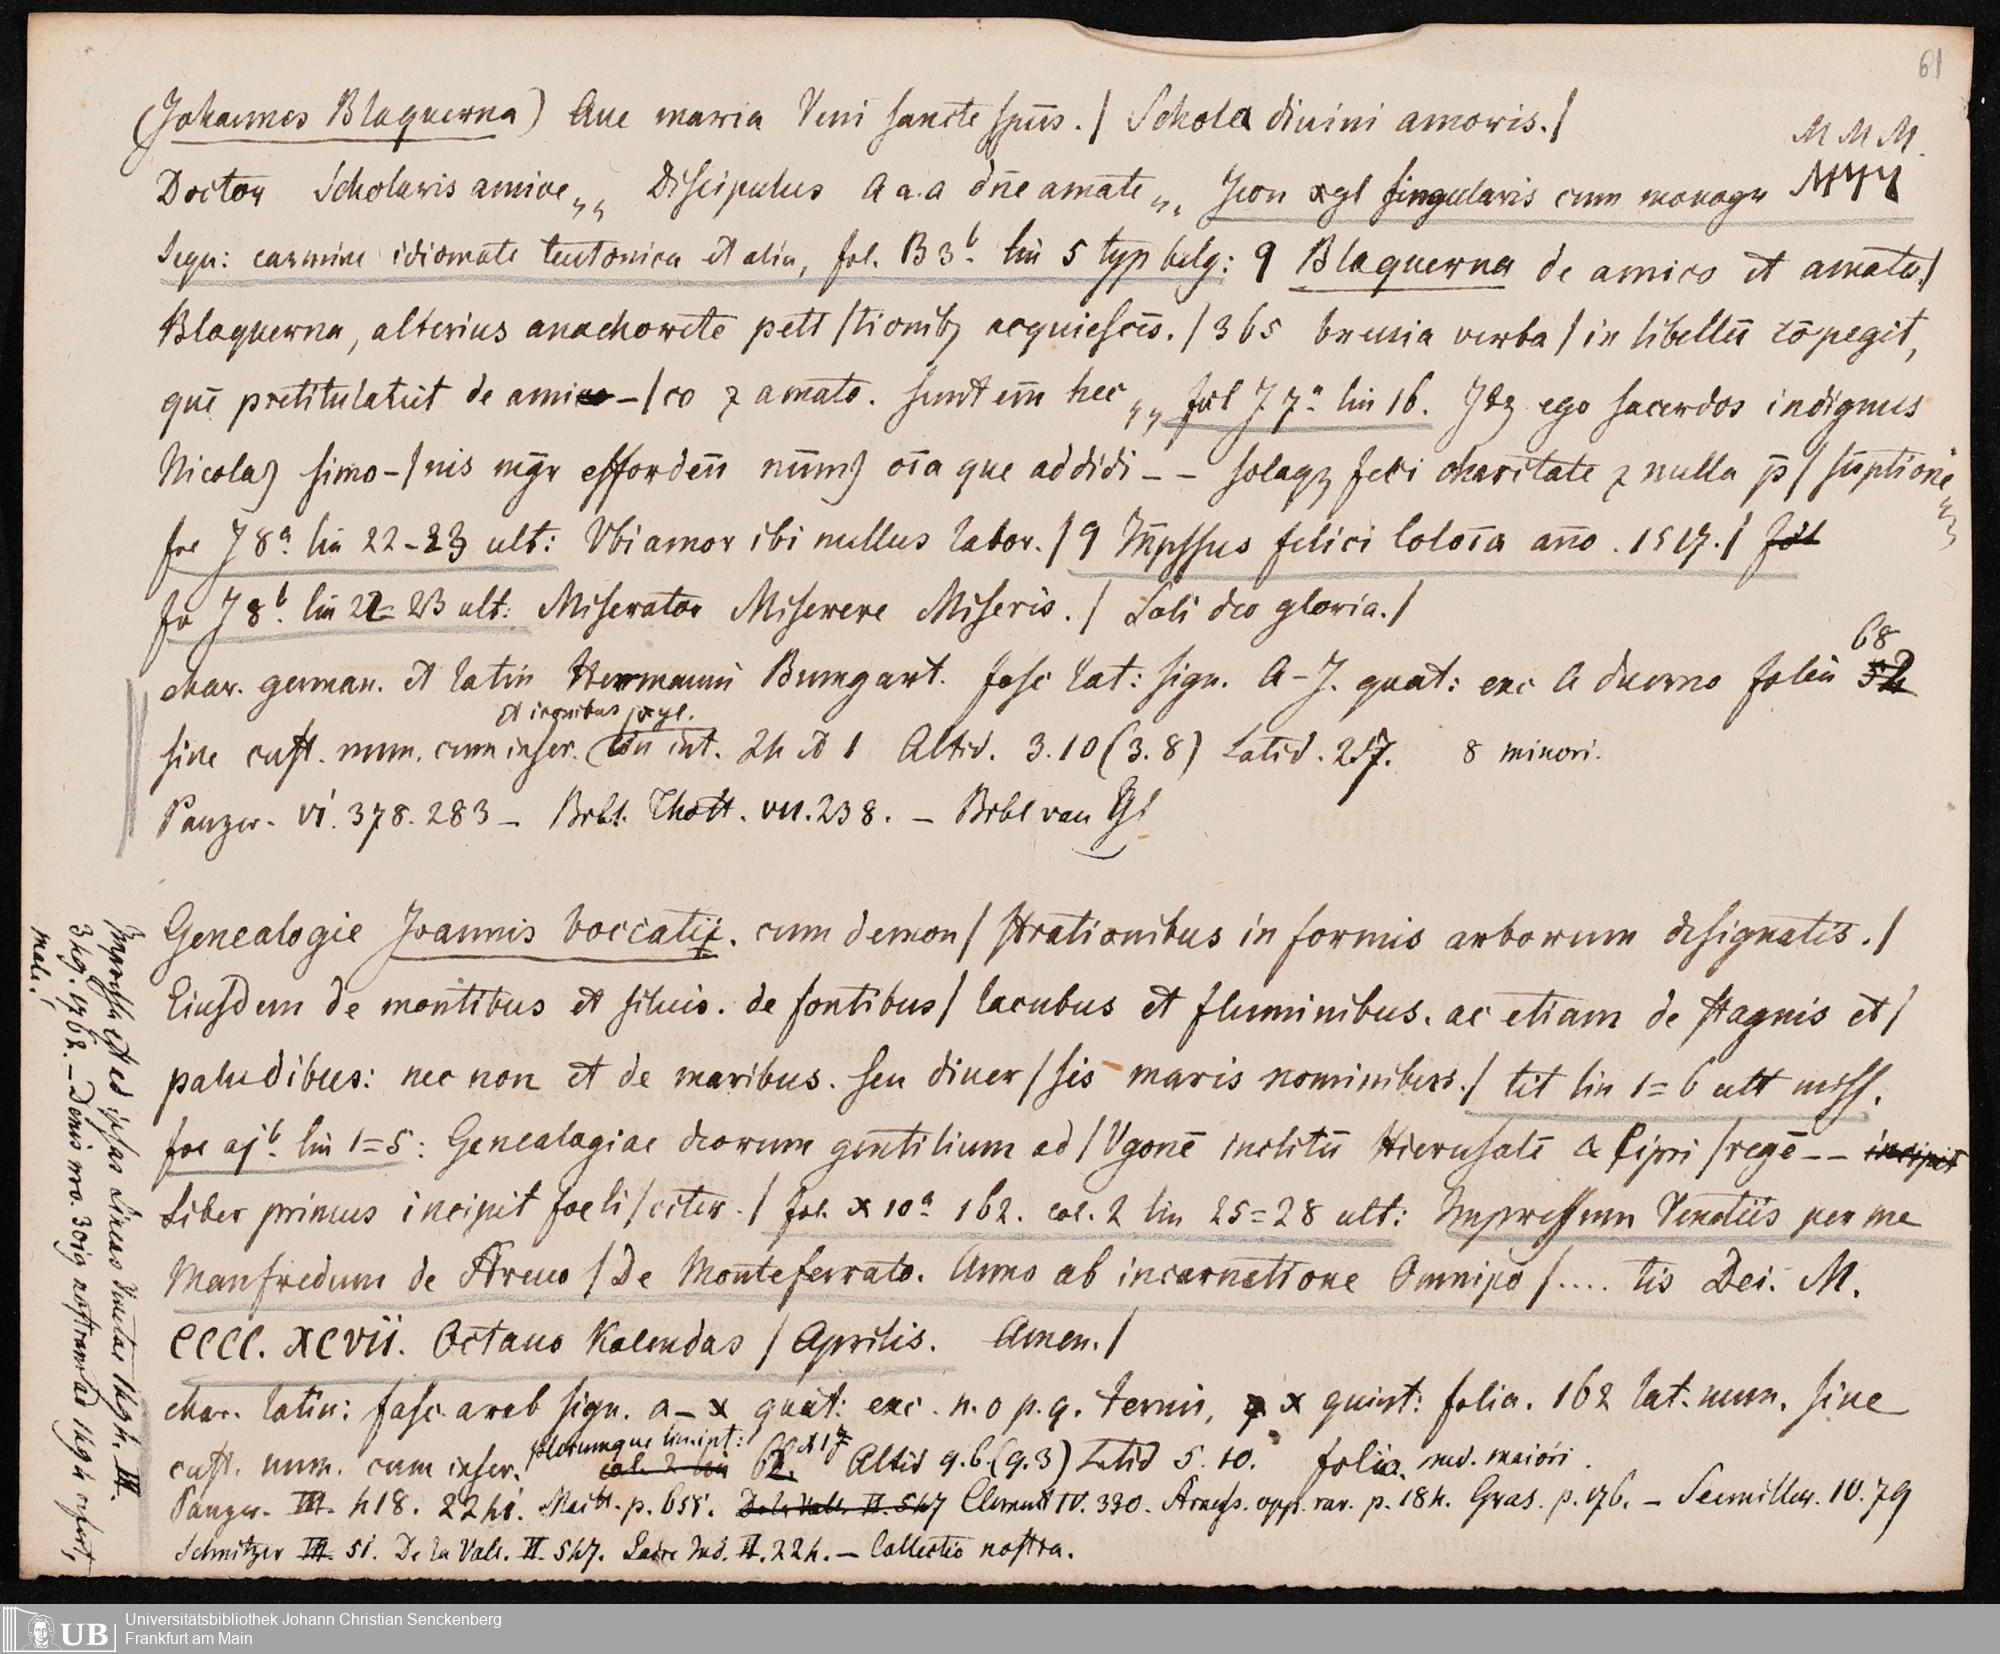 61
(Johannes Blaquerna) Aue maria Veni sancte spūs. / Schola diuini amoris. /
M M M.
Doctor Scholaris amice „ Discipulus a a.a dn̄e amate „ Icon xyl singularis cum monogr
sequ: carmine idiomate teutonica et alia, fol. B 3b. lin 5 typ belg: 9 Blaquerna de amico et amato /
Blaquerna, alterius anachorete peti / tionibꝫ acquiescēs. / 365 breuia verba / in libellū cōpegit,
quē pretitulauit de amico - / co ⁊ amato. sunt em̄ hec „ fol J 7a lin 16. ego sacerdos indignus
Nicolaꝰ simo- / nis addidi - - solaqꝫ feci charitate ⁊ nulla p̄ / sūptione „
fol J 8a. lin 22-23 ult: Vbi amor ibi nullus labor. / 9 Imp̄ssus felici Coloīa an̄o . 1517. / fol
fol J 8b. lin 22=23 ult: Miserator Miserere Miseris. / Soli deo gloria. /
char. german. et latin Hermanni Bumgart. fasc lat: sign. A-J. quat: exc A duerno folia 52 68
et iconibus xyl.
sine cust. num. cum inser. lin int. 24 et 1 Altid. 3.10 (3.8) Latid. 2.7. 8 minori.
Panzer. VI. 378. 283 - Bibl. Thott. VII. 238. - Bibl van
Genealogie Joannis boccatij. cum demon / strationibus in formis arborum designatis. /
Eiusdem de montibus et siluis. de fontibus / lacubus et fluminibus. ac etiam de stagnis et /
paludibus: nec non et de maribus. seu diuer / sis maris nominibus. / tit lin 1=6 ult miss.
fol aj b. lin 1=5: Genealogiae deorum gentilium ad / Vgonē inclitū Hierusalē & Cipri / regē - - incipit
Liber primus incipit foeli / citer. / fol. x 10a 162. col. 2 lin 25=28 ult: Impressum Venetiis per me
Manfredum de Streuo / De Monteferrato. Anno ab incarnatione Omnipo / .... tis Dei. M.
CCCC. XCVII. Octauo Kalendas / Aprilis. Amen. /
char. latin: fasc. arab sign. a - x quat: exc. n. o p. q. ternis, x quint: folia. 162 lat. num. sine
cust. num. cum inser. plerumque lin int: col. 2 lin 62. et 17 Altid 9.6. (9.3) Latid 5.10. folio. med. maiori.
Panzer. III. 418. 2241. Mait. p. 655. De la Vall. II. 547 Clement IV. 330. opp. rar. p. 184. Gras. p. 176. - Seemiller. IV. 79
Schnitzer III. 51. De la Vall. II. 547. Laire Ind. II. 224. - Collectio nostra.
Impressa est ad ipsas Lineas Venetiae 1494. IV.
349. 1762. - Denis nro. 3019 nostram ad 1494 refert,
male!
UB Universitätsbibliothek Johann Christian Senckenberg
Frankfurt am Main